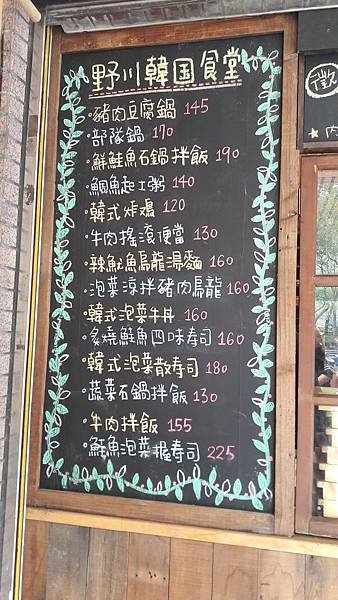 野川韓国食堂
·豬肉豆腐鍋 145
·部隊鍋 170
·鮮鮭魚石鍋拌飯 190
·鯛魚起士粥 140
·韓式炸雞 120
·牛肉搖滾便當 130
·辣魷魚烏龍湯麵 160
·泡菜涼拌豬肉烏龍 160
·韓式泡菜牛丼 160
·炙燒鮭魚四味寿司 160
·韓式泡菜散寿司 180
·蔬菜石鍋拌飯 130
·牛肉拌飯 155
·鮭魚泡菜握寿司 225
徵